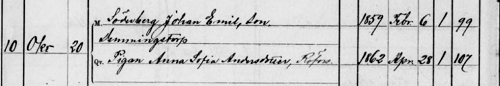 v. Söderberg Johan Emil, son, 1859 Febr 6 / 99
Hemmingstorp
10 Okr 20
Qv. Pigan Anna Sofia Andersdotter, Rofors. 1862 Apr 28 / 107